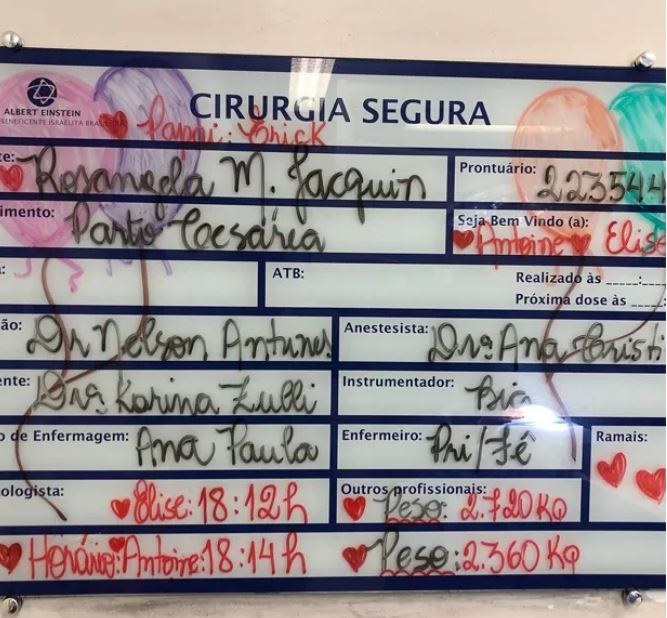 ALBERT EINSTEIN
BENEFICENTE ISRAELITA BRASILEIRA
CIRURGIA SEGURA
Papai: Erick
te: Rosangela M. Jacquin
Prontuário: 223544
imento: Parto Cesárea
Seja Bem Vindo (a):
Antoine Elise
ATB:
Realizado às ___:___
Próxima dose às
ão: Dr Nelson Antunes
Anestesista: Drª Ana Cristi
ente: Drª Karina Zulli
Instrumentador: Bia
o de Enfermagem: Ana Paula
Enfermeiro: Pri/Fê
Ramais:
ologista: Elise: 18:12h
Outros profissionais:
Peso: 2.720Kg
Horário: Antoine: 18:14h
Peso: 2.360 Kg